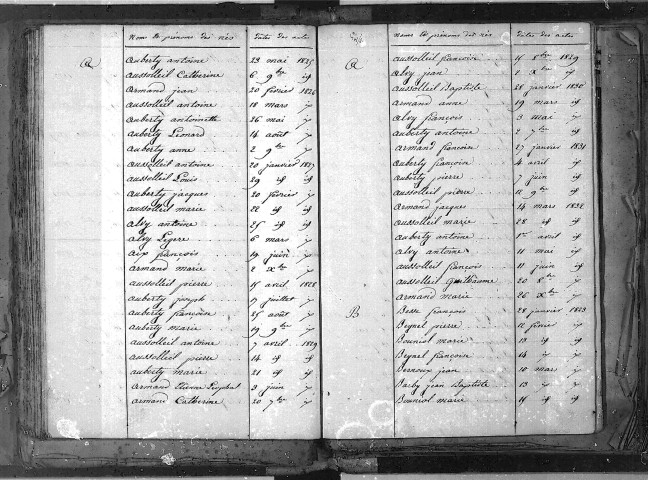 Nom et prénoms des nés Dates des actes
A
Auberty antoine 23 mai 1825
Aussolleil Catherine 6 9bre id
Armand jean 20 février 1826
Aussolleil antoine 18 mars "
Auberty antoinette 26 mai "
Auberty Léonard 14 août "
Auberty anne 2 9bre "
Aussolleil antoine 20 janvier 1827
Aussolleil Louis 29 id id
Auberty jacques 20 février "
Aussolleil marie 22 id id
Alvy antoine 25 id id
Alvy Légere 6 mars "
Aix françois 19 juin "
Armand marie 2 Xbre "
Aussolleil pierre 15 avril 1828
Auberty joseph 9 juillet "
Auberty françoise 25 août "
Auberty marie 19 9bre "
Aussolleil antoine 7 avril 1829
Aussolleil pierre 14 id id
Auberty marie 21 id "
Armand Etienne 3 juin "
Armand Catherine 20 7bre "
Noms et prénoms des nés Dates des actes
A
Aussolleil françoise 15 8bre 1829
Alvy jean 2 Xbre "
Aussolleil Baptiste 28 janvier 1830
Armand anne 19 mars id
Alvy françois 3 mai "
Auberty antoine 2 7bre id
Armand françoise 27 janvier 1831
Auberty françoise 4 avril "
Auberty pierre 7 juin id
Aussolleil pierre 12 9bre id
Armand jacques 14 mars 1832
Aussolleil marie 28 id id
Auberty antoine 1er avril id
Alvy antoine 11 mai id
Aussolleil françois 11 juin id
Aussolleil Guillaume 20 8bre "
Armand marie 26 Xbre "
B
Besse françois 28 janvier 1823
Beynel pierre 12 février "
Bouniol marie 13 id id
Beynel françoise 14 id "
Bernoux jean 10 mars "
Barby jean Baptiste 13 " "
Bouniol marie 15 id id